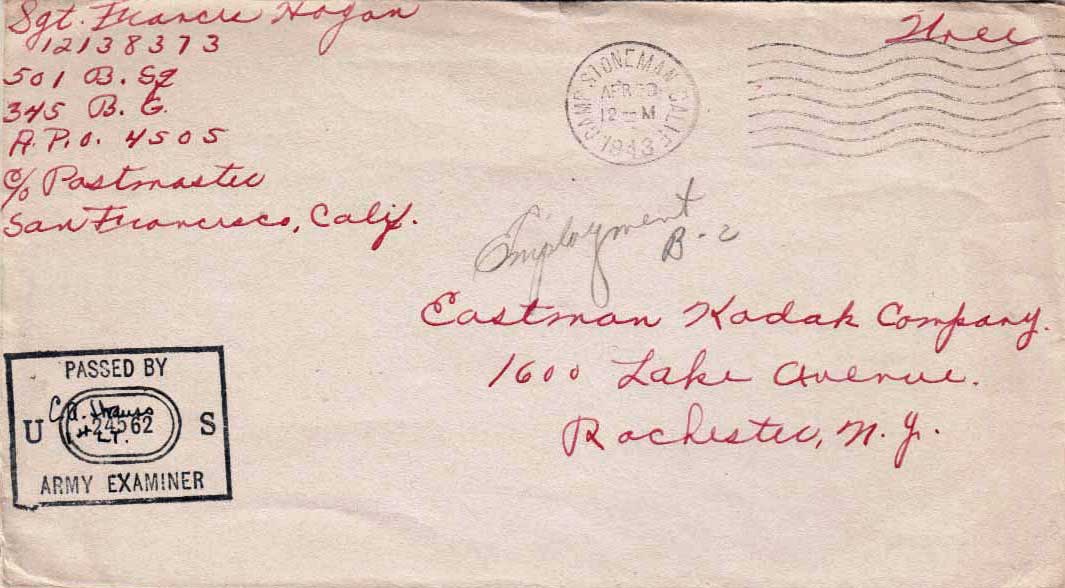 Sgt. Francis Hogan
12138373
501 B. Sq
345 B. G.
A.P.O. 4505
c/o Postmaster
San Francisco, Calif.
Free
CAMP STONEMAN, CALIF.
APR
12 M
1943
Employment
B-2
Eastman Kodak Company.
1600 Lake Avenue.
Rochester, N.Y.
PASSED BY
U 24562 S
1st LT.
ARMY EXAMINER